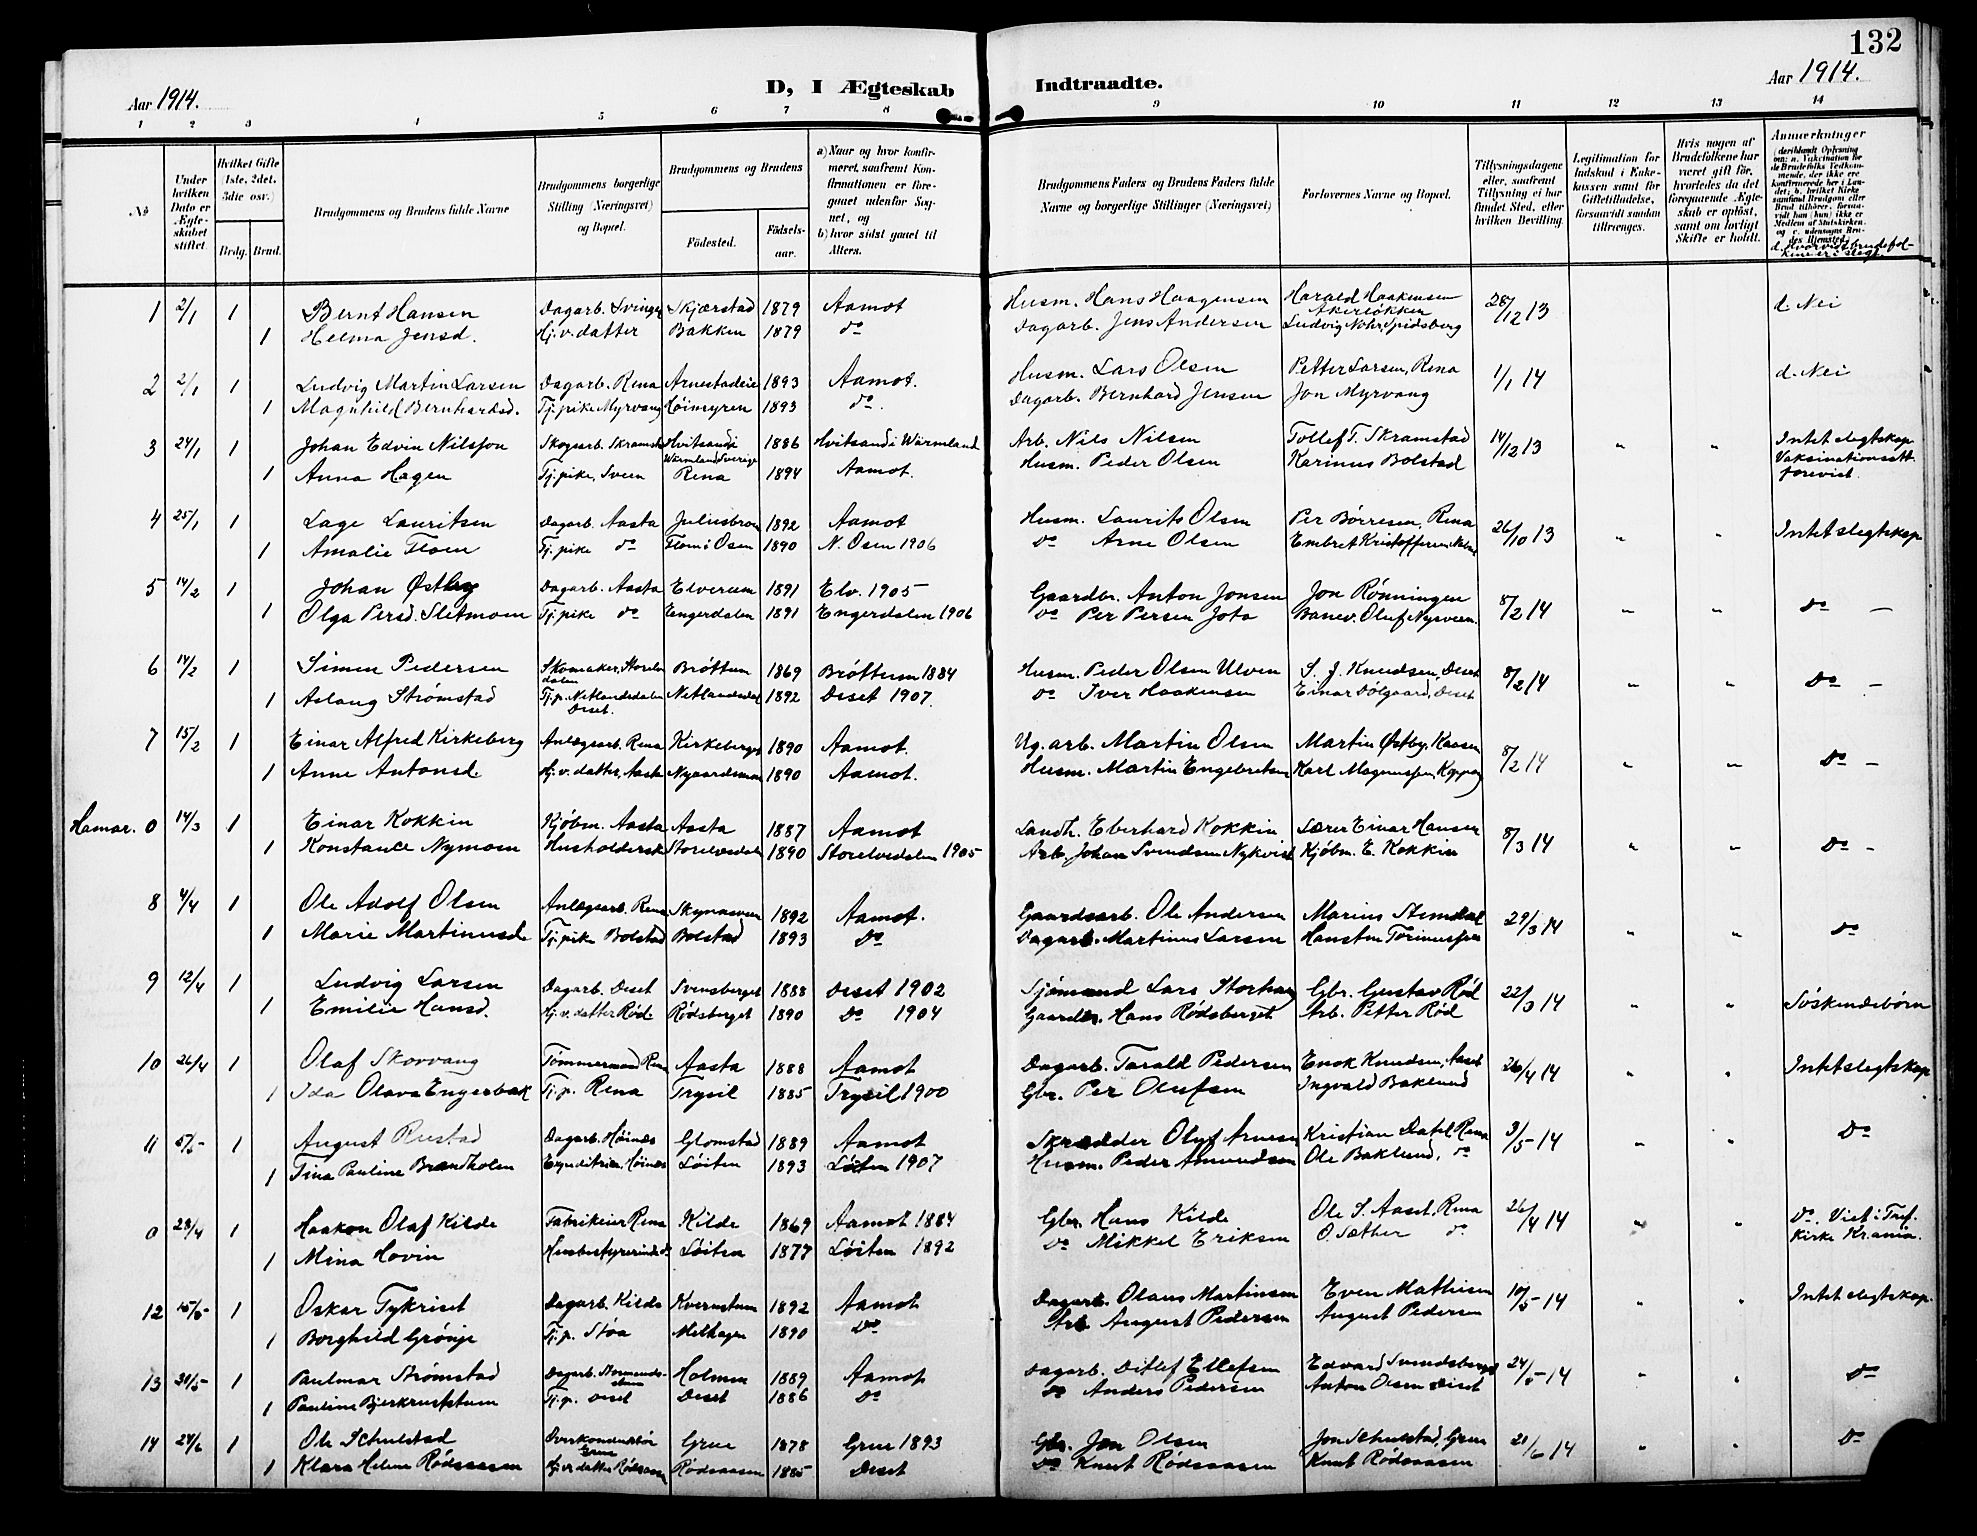 132
Aar 1914.
D, I Ægteskab Indtraadte.
Aar 1914.
1 2 3 4 5 6 7 8 9 10 11 12 13 14
No
Under hvilken Dato er Ægteskabet stiftet.
Hvilket Gifte (1ste, 2det, 3die osv.)
Brdg. Brud.
Brudgommens og Brudens fulde Navne
Brudgommens borgerlige Stilling (Næringsvei) og Bopæl.
Brudgommens og Brudens
Fødested.
Fødselsaar.
a) Naar og hvor konfirmeret, saafremt Konfirmationen er foregaaet udenfor Sognet, og
b) hvor sidst gaaet til Alters.
Brudgommens Faders og Brudens Faders fulde Navne og borgerlige Stillinger (Næringsvei)
Forlovernes Navne og Bopæl.
Tillysningsdagene eller, saafremt Tillysning ei har fundet Sted, efter hvilken Bevilling.
Legitimation for Indskud i Enkekassen samt for Giftetilladelse, forsaavidt saadan tiltrænges.
Hvis nogen af Brudefolkene har været gift før, hvorledes da det foregaaende Ægteskab er opløst, samt om lovligt Skifte er holdt.
Anmerkninger (deriblandt Oplysning om: a. Vakcination for de Brudefolks Vedkommende, der ikke ere konfirmerede her i Landet; b. hvilket Kirkesamfund Brudgom eller Brud tilhører, forsaavidt han (hun) ikke er Medlem af Statskirken, og c. udensogns Brudes Hjemsted)
d. Hvorvidt brudefolkene er i slegt.
1 2/1 1 Bernt Hansen Dagarb. Svingen Skjærstad 1879 Aamot Husm. Hans Haagensen Harald Haakensen Akerløkken 28/12 13 d. Nei
1 Helma Jensd. Hj.v. datter Bakken 1879 do Dagarb. Jens Andersen Ludvig Nohr, Spidsberg
2 2/1 1 Ludvig Martin Larsen Dagarb. Rena Arnestadeie 1893 Aamot. Husm. Lars Olsen Petter Larsen, Rena 1/1 14 d. Nei
1 Magnhild Bernhardsd. Tj.pike Myrvang Høimyren 1893 do. Dagarb. Bernhard Jensen Jon Myrvang
3 24/1 1 Johan Edvin Nilsson Skogsarb. Skramstad Hvitsand i Wärmland Sverige 1886 Hvitsand i Wärmland Arb. Nils Nilsen Tollef T. Skramstad 14/12 13 " " Intet slegtskap Vaksinationsatt. forevist.
1 Anna Hagen Tj.pike, Sveen Rena 1894 Aamot. Husm. Peder Olsen Karinus Bolstad
4 25/1 1 Lage Lauritsen Dagarb. Aasta Juliusbroen 1892 Aamot Husm. Laurits Olsen Per Børresen, Rena 26/10 13 " " Intet slegtskap
1 Amalie Floen Tj.pike do Floen i Osen 1890 N. Osen 1906 do Arne Olsen Embret Kristoffersen
5 14/2 1 Johan Østby Dagarb. Aasta Elverum 1891 Elv. 1905 Gaardbr. Anton Jonsen Jon Rønningen 8/2 14 " " Do —
1 Olga Persd. Sletmoen Tj.pike do Engerdalen 1891 Engerdalen 1906 do Per Persen Jota Banev. Oluf Nysveen.
6 14/2 1 Simen Pedersen Skomaker, Storelvdalen Brøttum 1869 Brøttum 1884 Husm. Peder Olsen Ulven S. J. Knudsen, Deset 8/2 14 " " Do —
1 Aslaug Strømstad Tj.p. Netlandsdalen Deset. Netlandsdal 1892 Deset 1907. do Iver Haakensen Einar Dølgaard, Deset
7 15/2 1 Einar Alfred Kirkeberg Anlægsarb. Rena Kirkeberget 1890 Aamot. Ug. arb. Martin Olsen Martin Østby, Kaasen 8/2 14 " " Do —
1 Anne Antonsd. Hj.v. datter, Aasta Nygaardsmoen 1890 Aamot. Husm. Martin Engebretsen Karl Magnussen, Koppang
Hamar. 0 14/3 1 Einar Kokkin Kjøbm. Aasta Aasta 1887 Aamot Landh. Eberhard Kokkin Lærer Einar Hansen 8/3 14 " " Do -
1 Konstance Nymoen Husholdersk Storelvedalen 1890 Storelvedalen 1905 Arb. Johan Svendsen Nykvist Kjøbm. E. Kokkin
8 4/4 1 Ole Adolf Olsen Anlægsarb. Rena Skynasveen 1892 Aamot. Gaardsarb. Ole Andersen Marius Stemdal 29/3 14 " " Do
1 Marie Martinusd. Tj.pike Bolstad Bolstad 1893 Do Dagarb. Martinus Larsen Hansten Torinussen
9 12/4 1 Ludvig Larsen Dagarb. Deset Svensberget 1888 Deset 1902 Sjømand Lars Storhaug Gbr. Gustav Rød 22/3 14 " " Søskendebørn
1 Emilie Hansd. Hj.v. datter Rød Rødsberget 1890 Do 1904 Gaardbr. Hans Rødsberget Arb. Petter Rød
10 26/4 1 Olaf Skovvang Tømmermand Rena Aasta 1888 Aamot Dagarb. Tarald Pedersen Enok Knudsen, Aaset 26/4 14 " " Intet slegtskap
1 Ida Olava Engerbak Tj.p. Rena Trysil 1885 Trysil 1900 Gbr. Per Olufsen Ingvald Baklund
11 5/5 1 August Rustad Dagarb. Høinæs Glomstad 1889 Aamot Skrædder Oluf Arnesen Kristian Datel, Rena 3/5 14 " " Do
1 Tina Pauline Brændholen Expeditrice Høinæs Løiten 1893 Løten 1907 Husm. Peder Amundsen Ole Baklund, do
0 28/4 1 Haakon Olaf Kilde Fabrikeier Rena Kilde 1869 Aamot 1884 Gbr. Hans Kilde Ole S. Aaset, Rena 26/4 14 " " Do. Viet i Tref. Kirke Kr.ania.
1 Mina Hovin Husbestyrerinde do Løiten 1877 Løiten 1892 Do Mikkel Eriksen O. Sæther do
12 15/5 1 Oskar Tykriset Dagarb. Kilde Kvernstuen 1892 Aamot Dagarb. Olaus Martinsen Even Mathisen 10/5 14 " " Intet slegtskap.
1 Borghild Grønje Tj.p. Støa Melhagen 1890 Do Arb. August Pedersen August Pedersen
13 31/5 1 Paulmar Strømstad Dagarb. Holmen 1889 Aamot Dagarb. Ditlef Ellefsen Edvard Svendsberget 24/5 14 " " Do
1 Pauline Bjerknesstuen Tj.p. Deset Deset 1886 Do Do Anders Pedersen Anton Olsen Deset
14 24/6 1 Ole Schulstad Overkonduktør Grue Grue 1878 Grue 1893 Gbr. Jon Olsen Jon Schulstad, Grue 21/6 14 " " Do
1 Klara Helene Rødsaasen Hj.v. datter Rødsaasen Rødsaasen 1885 Deset Do Knut Rødsaasen Knut Rødsaasen